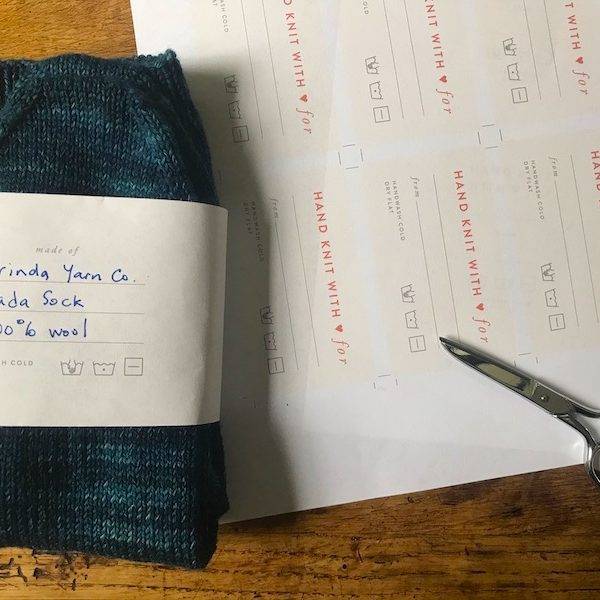 made of
rinda Yarn Co.
ada Sock
00% wool
H COLD
COLD
D KNIT WITH ♥ for
KNIT WITH ♥ for
T WITH ♥ for
from
HANDWASH COLD
DRY FLAT
HAND KNIT WITH ♥ for
from
HANDWASH COLD
DRY FLAT
HAND KNIT WITH ♥ for
from
HANDWASH COLD
DRY FLAT
HAND KN